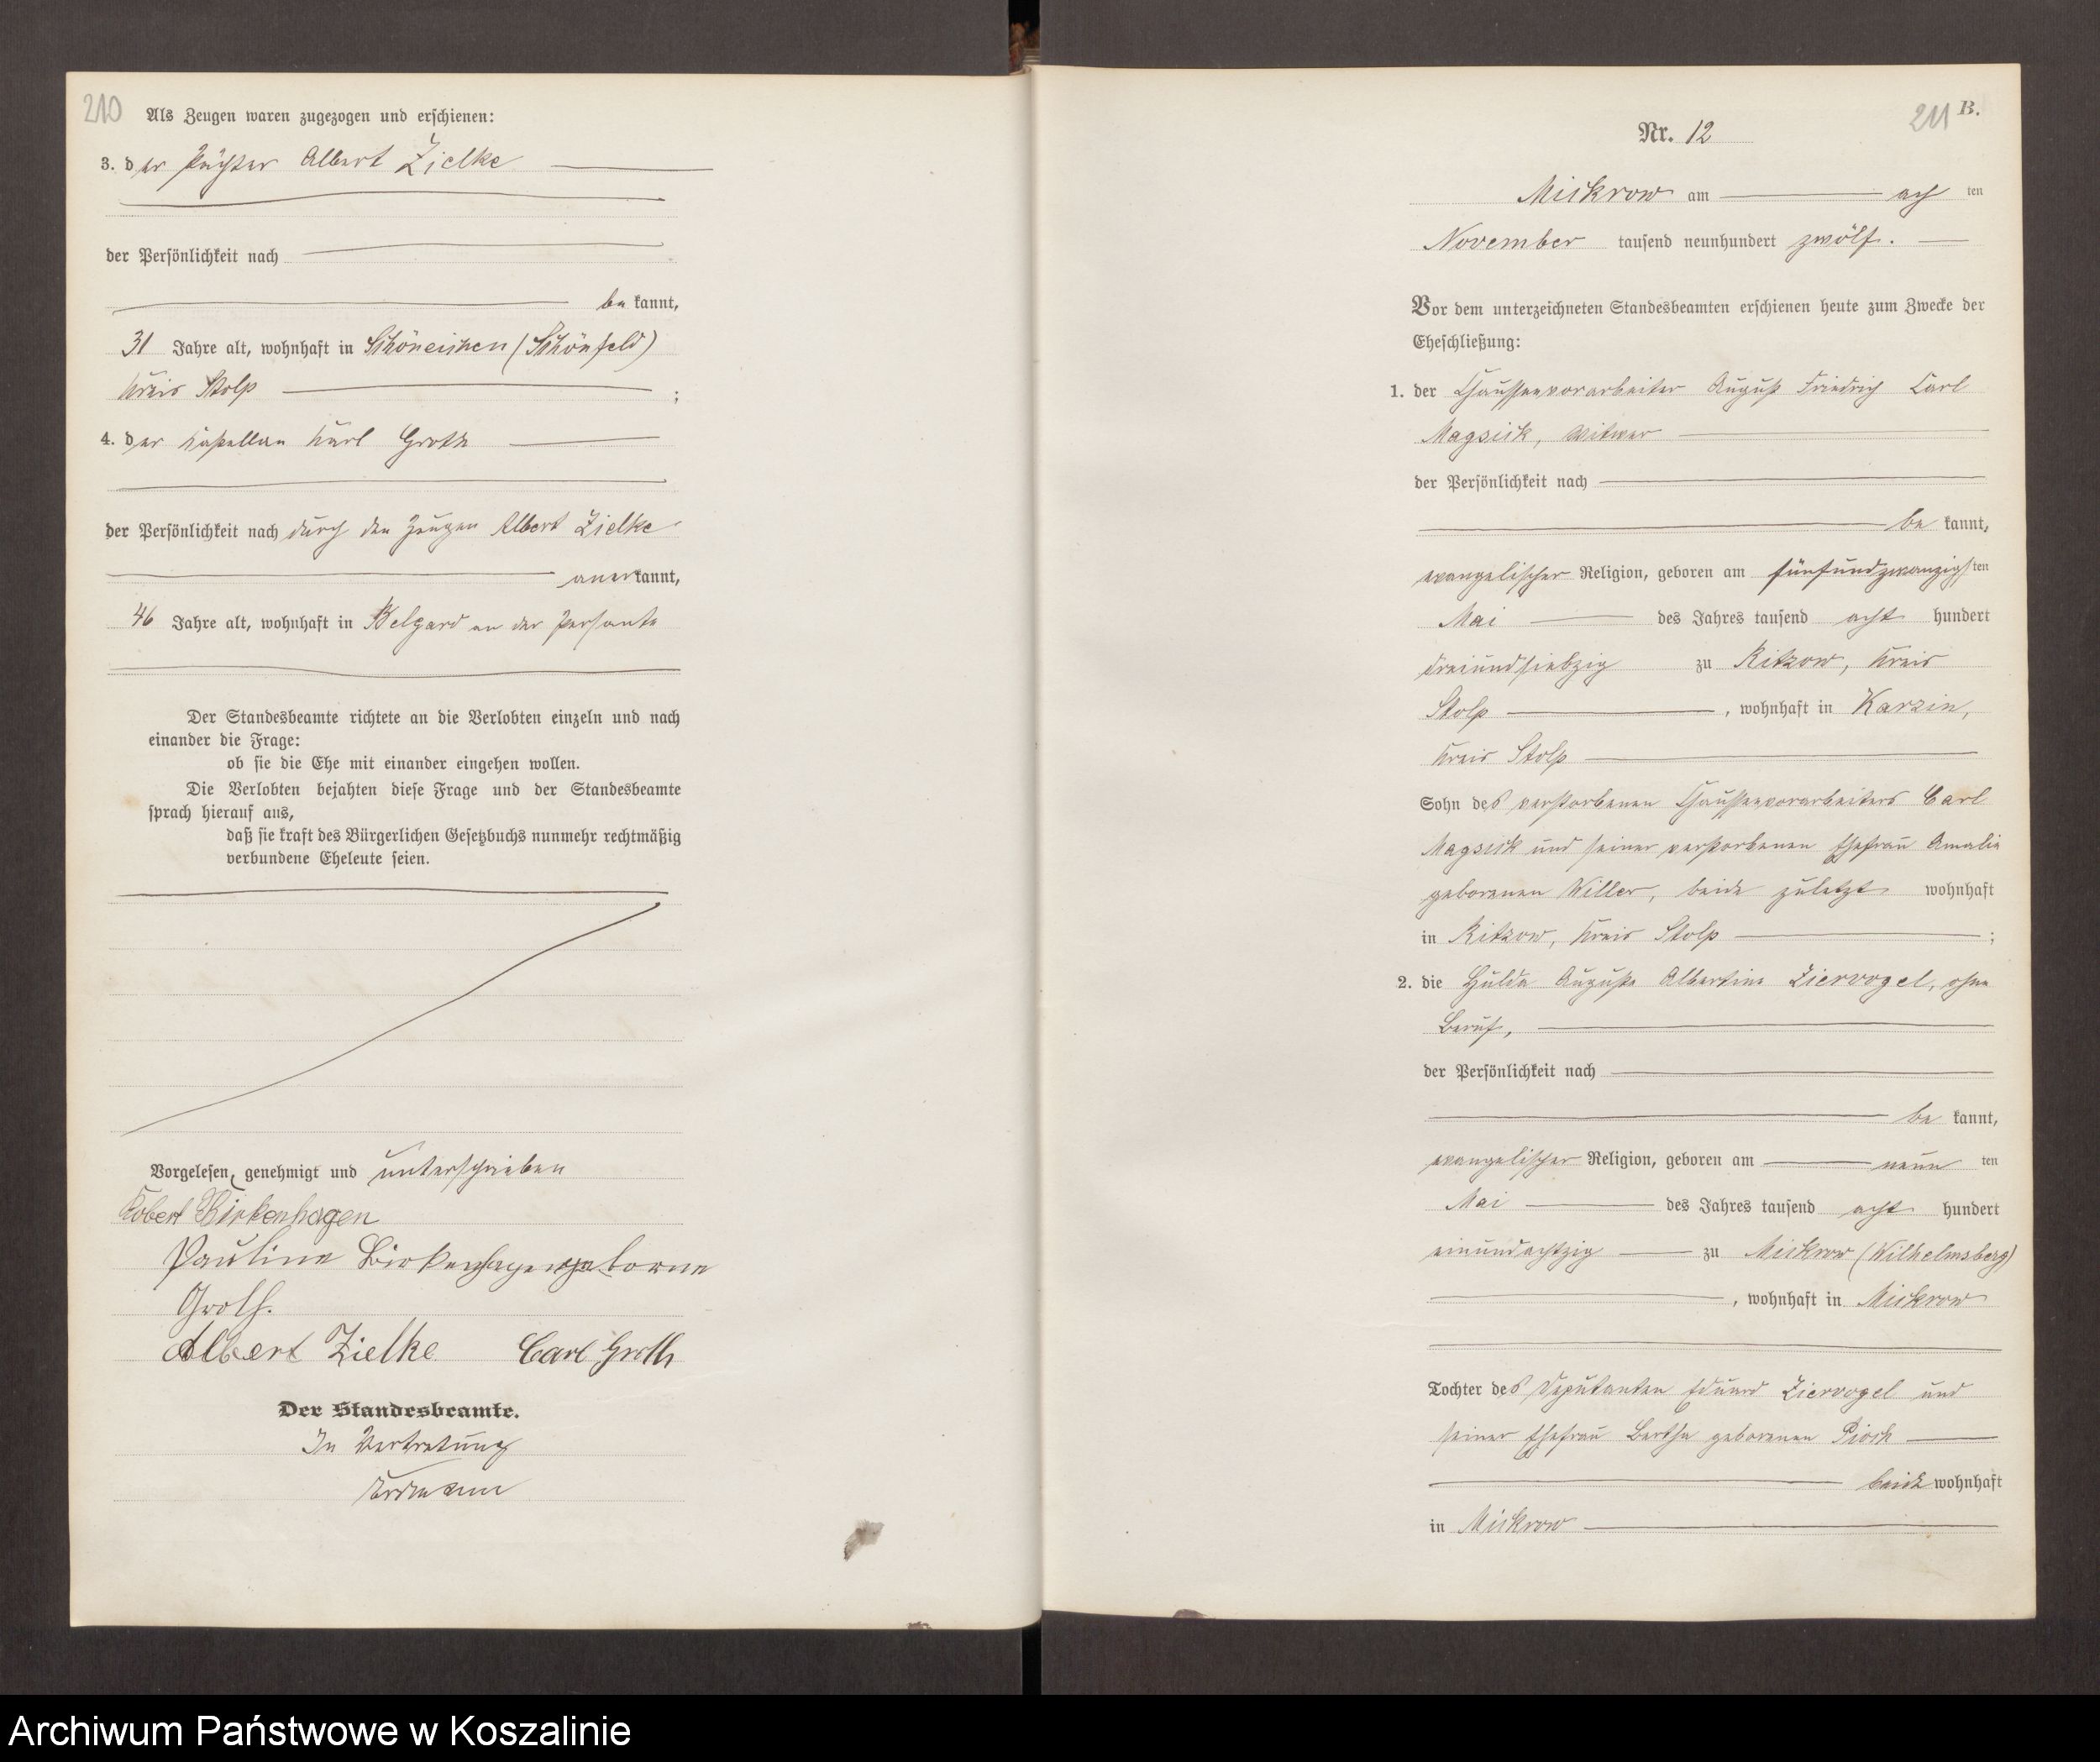 210
Als Zeugen waren zugezogen und erschienen:
3. der Pächter Albert Zielke
der Persönlichkeit nach
bekannt,
31 Jahre alt, wohnhaft in Schöneichen (Schönfeld)
Kreis Stolp ;
4. der Kastellan Karl Groth
der Persönlichkeit nach durch den Zeugen Albert Zielke
anerkannt,
46 Jahre alt, wohnhaft in Belgard an der Persante
Der Standesbeamte richtete an die Verlobten einzeln und nach
einander die Frage:
ob sie die Ehe mit einander eingehen wollen.
Die Verlobten bejahten diese Frage und der Standesbeamte
sprach hierauf aus,
daß sie kraft des Bürgerlichen Gesetzbuchs nunmehr rechtmäßig
verbundene Eheleute seien.
Vorgelesen, genehmigt und unterschrieben
Robert Birkenhagen
Pauline Birkenhagen geborne
Groth.
Albert Zielke Carl Groth
Der Standesbeamte.
In Vertretung
211 B.
Nr. 12
Mickrow am achten
November tausend neunhundert zwölf.
Vor dem unterzeichneten Standesbeamten erschienen heute zum Zwecke der
Eheschließung:
1. der Chausseevorarbeiter August Friedrich Carl
Magsick, Witwer
der Persönlichkeit nach
bekannt,
evangelischer Religion, geboren am fünfundzwanzigsten
Mai des Jahres tausend acht hundert
dreiundsiebzig zu Ritzow, Kreis
Stolp , wohnhaft in Karzin,
Kreis Stolp
Sohn des verstorbenen Chausseevorarbeiters Carl
Magsick und seiner verstorbenen Ehefrau Amalie
geborenen Willer, beide zuletzt wohnhaft
in Ritzow, Kreis Stolp ;
2. die Hulda Auguste Albertine Ziervogel, ohne
Beruf,
der Persönlichkeit nach
bekannt,
evangelischer Religion, geboren am neunten
Mai des Jahres tausend acht hundert
einundachtzig zu Mickrow (Wilhelmsberg)
, wohnhaft in Mickrow
Tochter des Deputanten Eduard Ziervogel und
seiner Ehefrau Bertha geborenen Piork
beide wohnhaft
in Mickrow
Archiwum Państwowe w Koszalinie